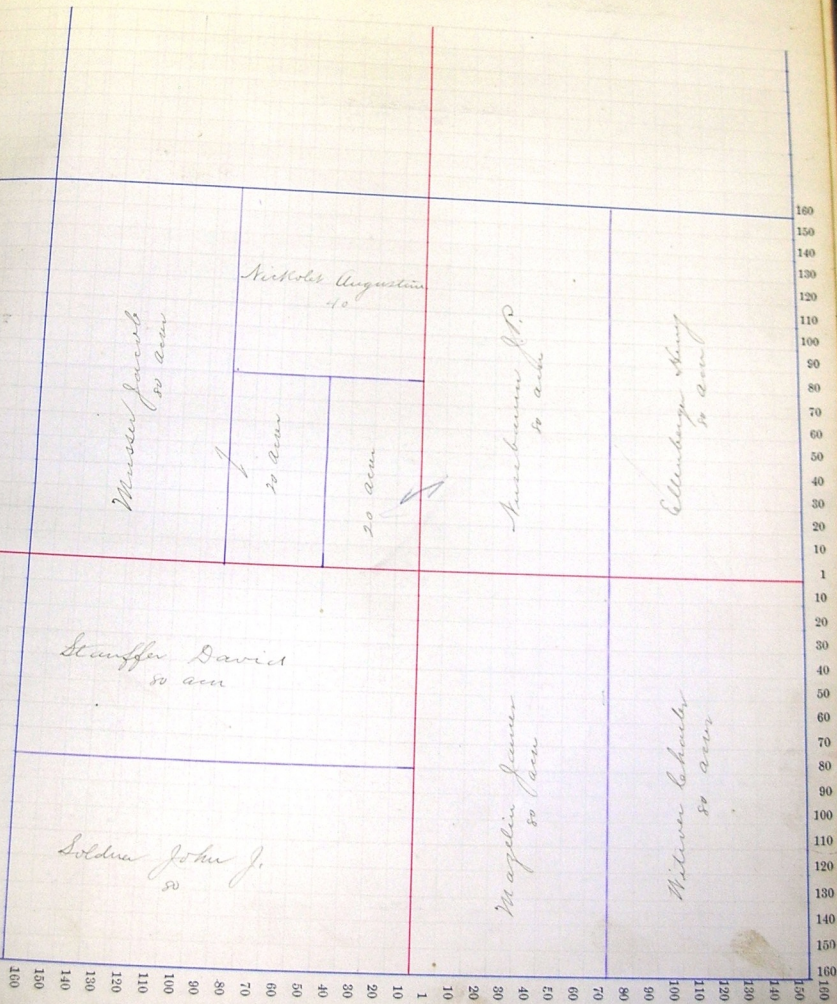 Nickolet Augustine
40
Musser Jacob
80 acres
20 acres
20 acres
Nusebaum J.P.
80 acres
Ellenberger
80 acres
Stauffer David
80 acres
Soldner John J.
80
Mazelin James
80 acres
Witwer Charles
80 acres
160
150
140
130
120
110
100
90
80
70
60
50
40
30
20
10
1
10
20
30
40
50
60
70
80
90
100
110
120
130
140
150
160
160 150 140 130 120 110 100 90 80 70 60 50 40 30 20 10 1 10 20 30 40 50 60 70 80 90 100 110 120 130 140 150 160